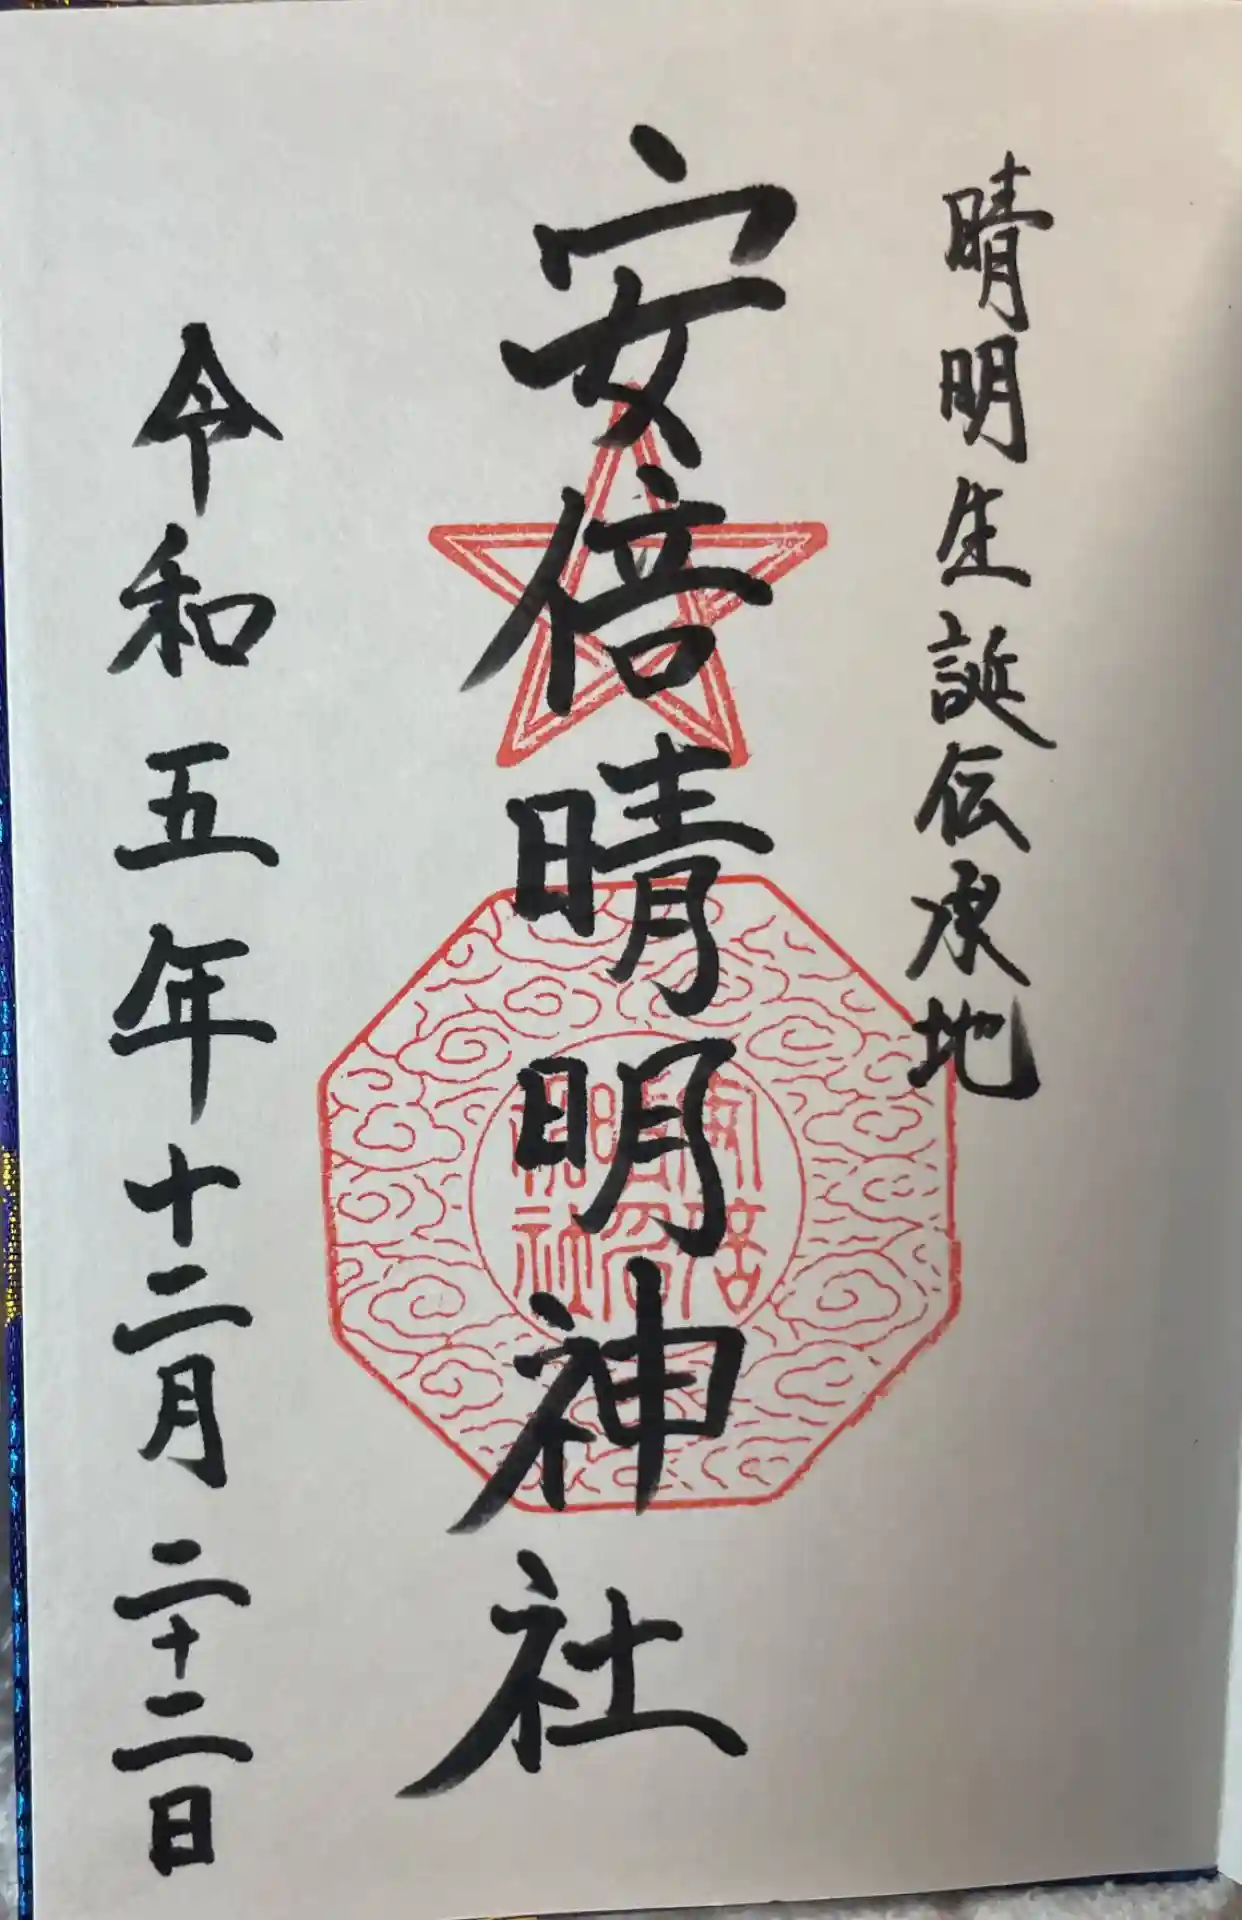 晴明生誕伝承地
安倍晴明神社
令和五年十二月二十二日
安倍
晴明
神社